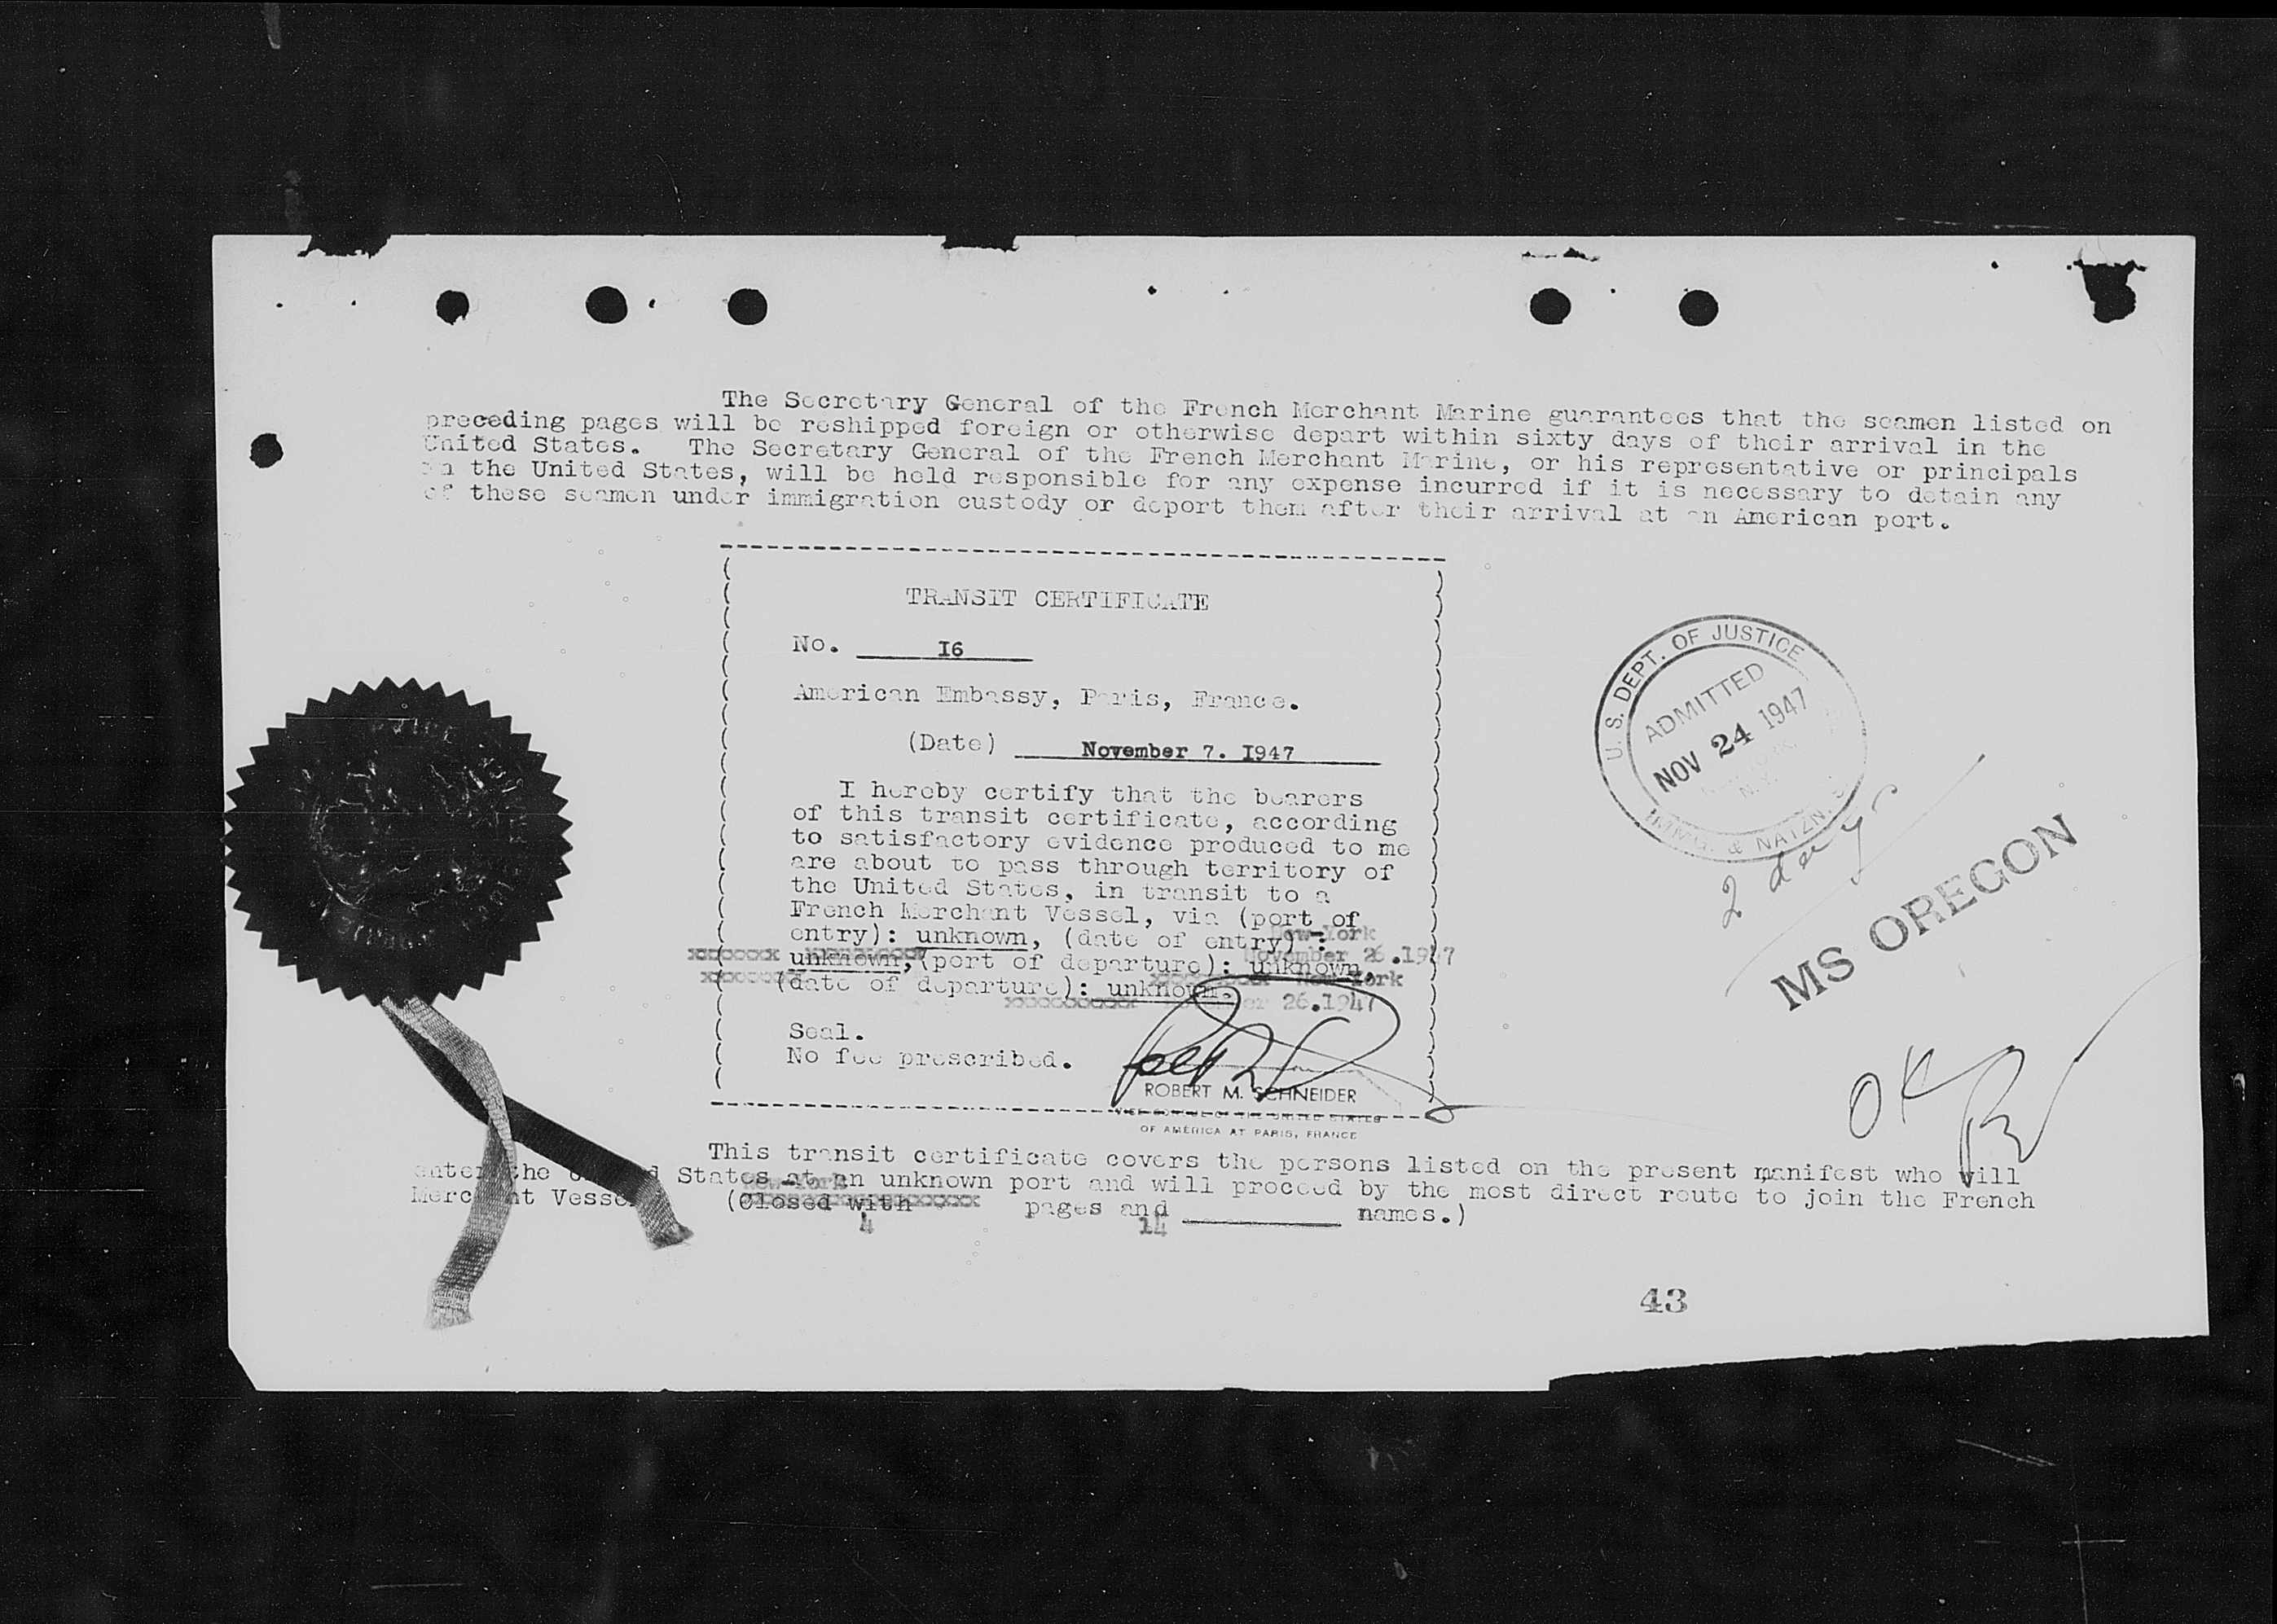 The Secretary General of the French Merchant Marine guarantees that the seamen listed on
preceding pages will be reshipped foreign or otherwise depart within sixty days of their arrival in the
United States. The Secretary General of the French Merchant Marine, or his representative or principals
in the United States, will be held responsible for any expense incurred if it is necessary to detain any
of these seamen under immigration custody or deport them after their arrival at an American port.
TRANSIT CERTIFICATE
No. I6
American Embassy, Paris, France.
(Date) November 7. I947
I hereby certify that the bearers
of this transit certificate, according
to satisfactory evidence produced to me
are about to pass through territory of
the United States, in transit to a
French Merchant Vessel, via (port of
entry): unknown, (date of entry) :
New-York
unknown, (port of departure): unknown,
November 26.1947
(date of departure): unknown.
New-York
26.1947
Seal.
No fee prescribed.
ROBERT M. SCHNEIDER
VICE CONSUL OF THE UNITED STATES
OF AMERICA AT PARIS, FRANCE
U. S. DEPT. OF JUSTICE
ADMITTED
NOV 24 1947
N.Y.
IMMG. & NATZN. S
2 days
MS OREGON
OK
This transit certificate covers the persons listed on the present manifest who will
enter the United States at an unknown port and will proceed by the most direct route to join the French
New-York
Merchant Vessel (Closed with pages and names.)
4 14
43